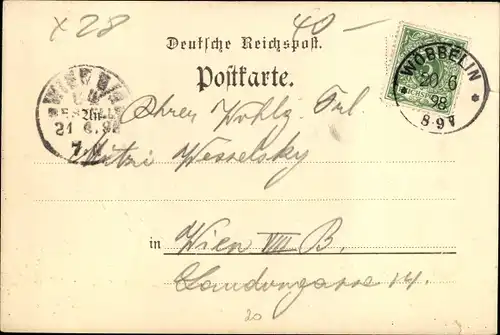 x 28
40 —
Deutsche Reichspost.
Postkarte.
WÖBBELIN
20/6
98
8-9V
WIEN
BESTELLT
21 6. 9
7
Ihrer Wohlg. Frl.
Mitzi Wesselsky
in Wien VIII B.
Landongasse 14.
20